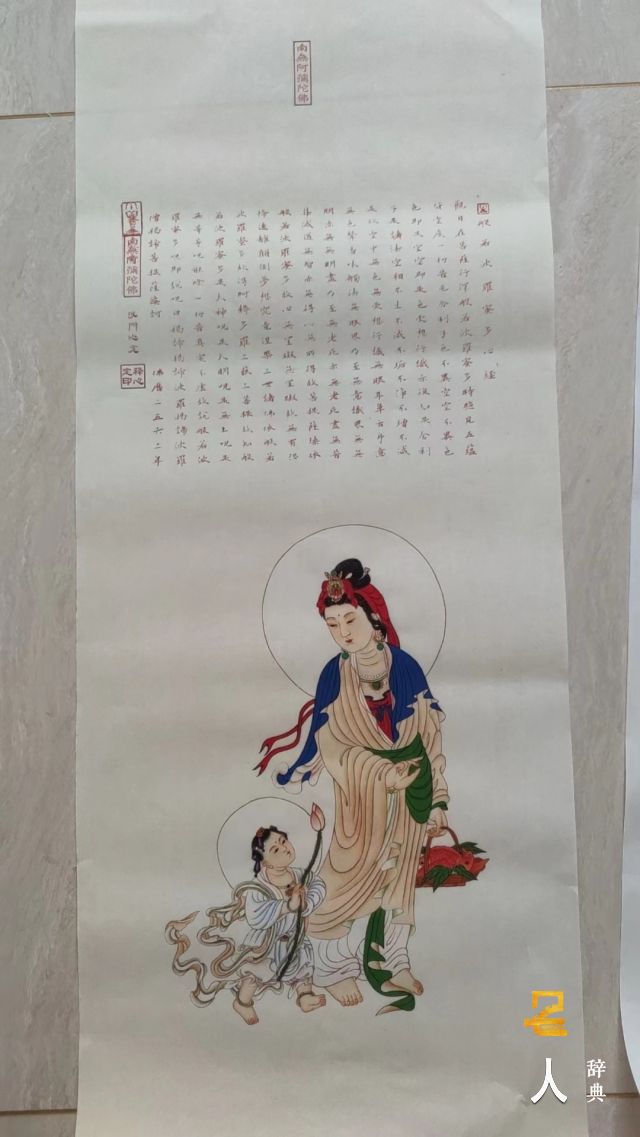 南無阿彌陀佛
般若波羅蜜多心經
觀自在菩薩行深般若波羅蜜多時照見五蘊
皆空度一切苦厄舍利子色不異空空不異色
色即是空空即是色受想行識亦復如是舍利
子是諸法空相不生不滅不垢不淨不增不減
是故空中無色無受想行識無眼耳鼻舌身意
無色聲香味觸法無眼界乃至無意識界無無
明亦無無明盡乃至無老死亦無老死盡無苦
集滅道無智亦無得以無所得故菩提薩埵依
般若波羅蜜多故心無罣礙無罣礙故無有恐
怖遠離顛倒夢想究竟涅槃三世諸佛依般若
波羅蜜多故得阿耨多羅三藐三菩提故知般
若波羅蜜多是大神咒是大明咒是無上咒是
無等等咒能除一切苦真實不虛故說般若波
羅蜜多咒即說咒曰揭諦揭諦波羅揭諦波羅
僧揭諦菩提薩婆訶 佛曆二五六二年
沙門心定
南無阿彌陀佛
釋心定印
名人辞典